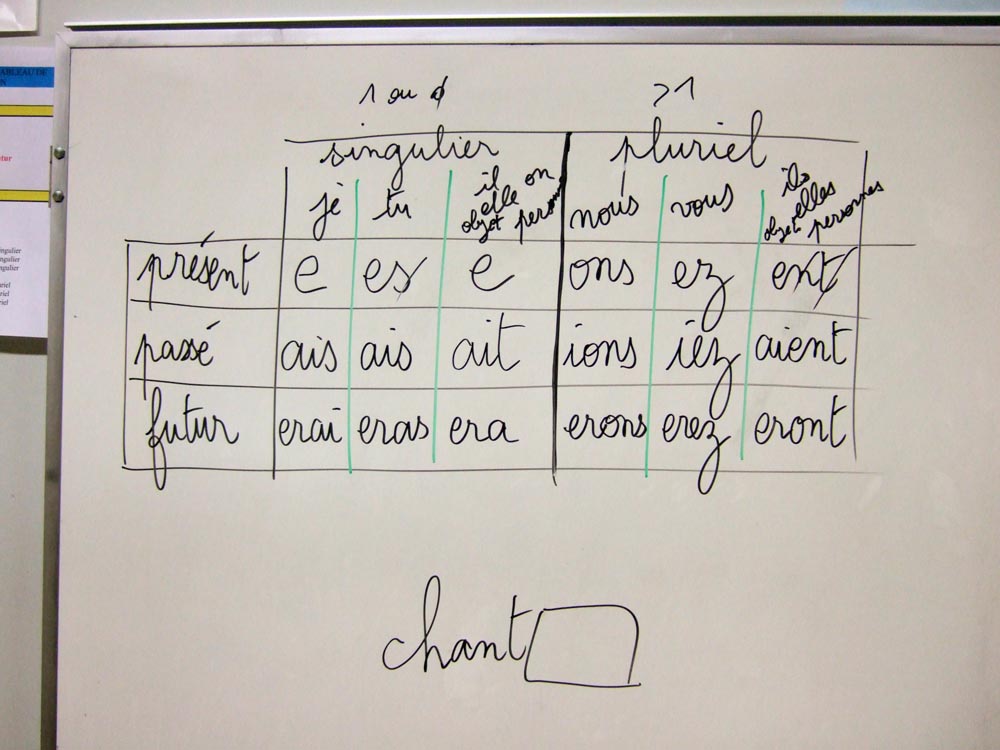 1 ou 0 >1
singulier pluriel
je tu il elle on objet personne nous vous ils elles objets personnes
présent e es e ons ez ent
passé ais ais ait ions iez aient
futur erai eras era erons erez eront
chant
ABLEAU DE
N
tur
ngulier
ngulier
ngulier
riel
riel
riel